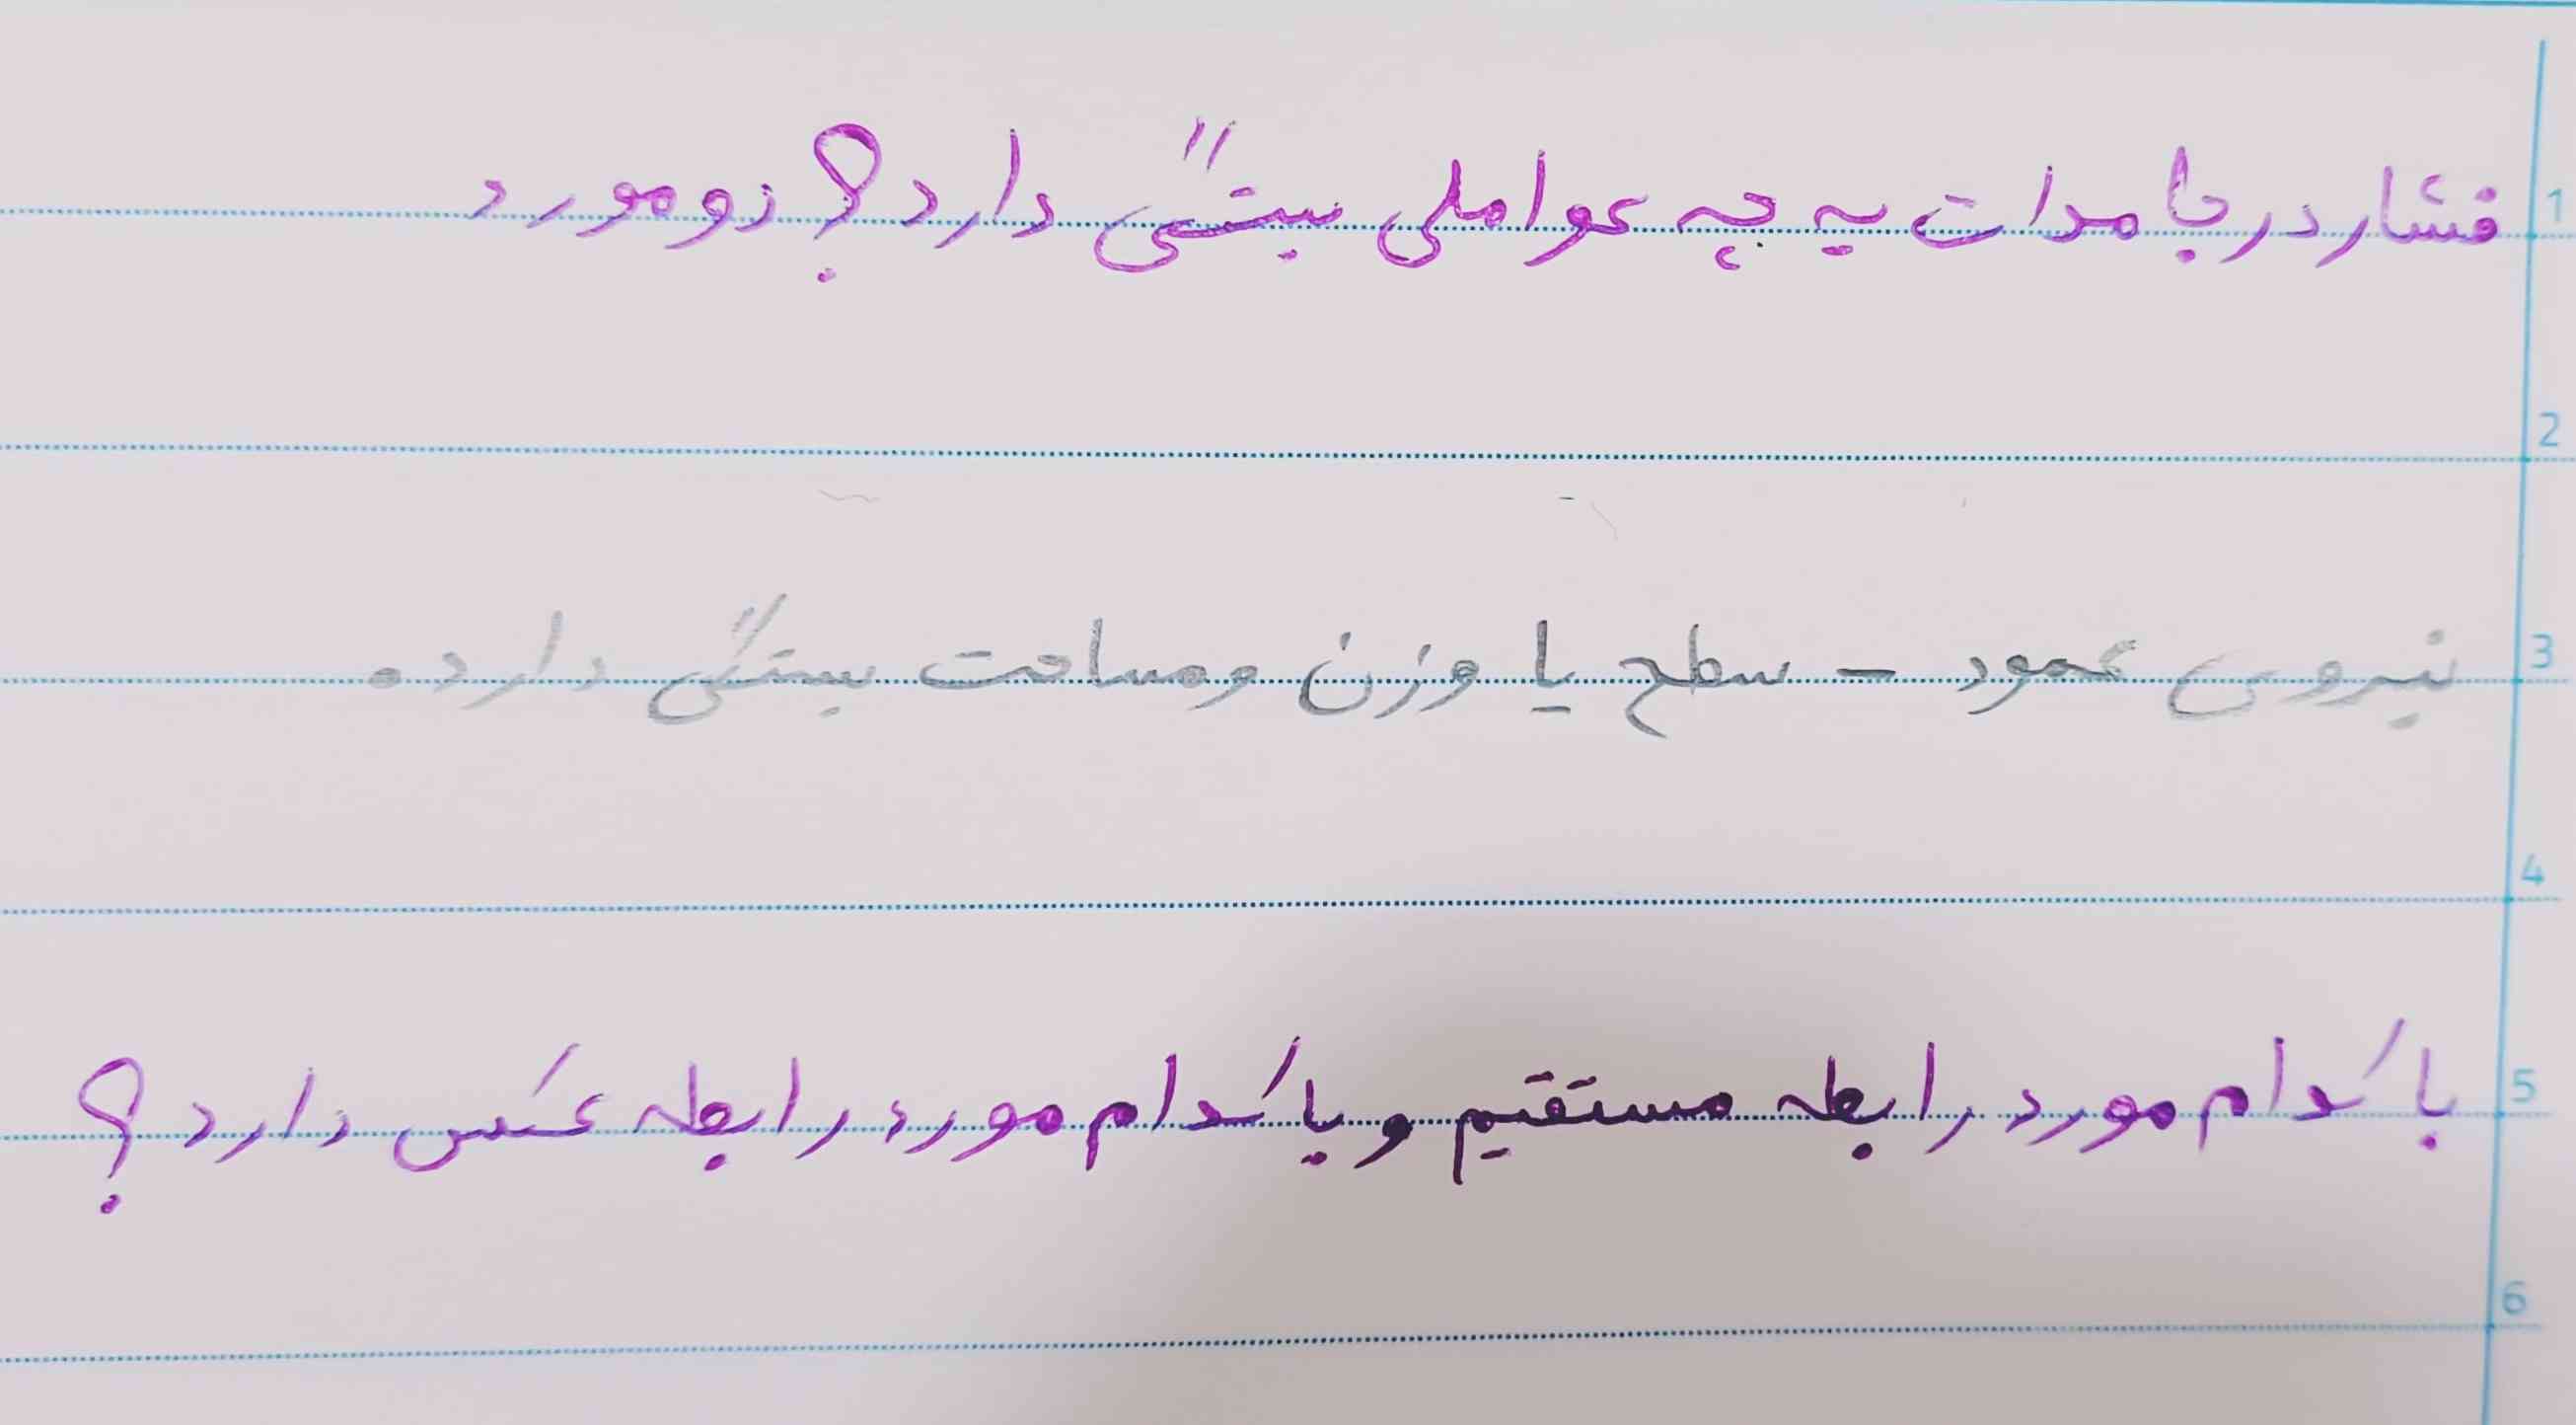 فشار در جامدات به چه عواملی بستگی دارد؟ دو مورد
نیروی عمود - سطح یا وزن و مساحت بستگی دارد.
با کدام مورد رابطه مستقیم و با کدام مورد رابطه عکس دارد؟
1
2
3
4
5
6